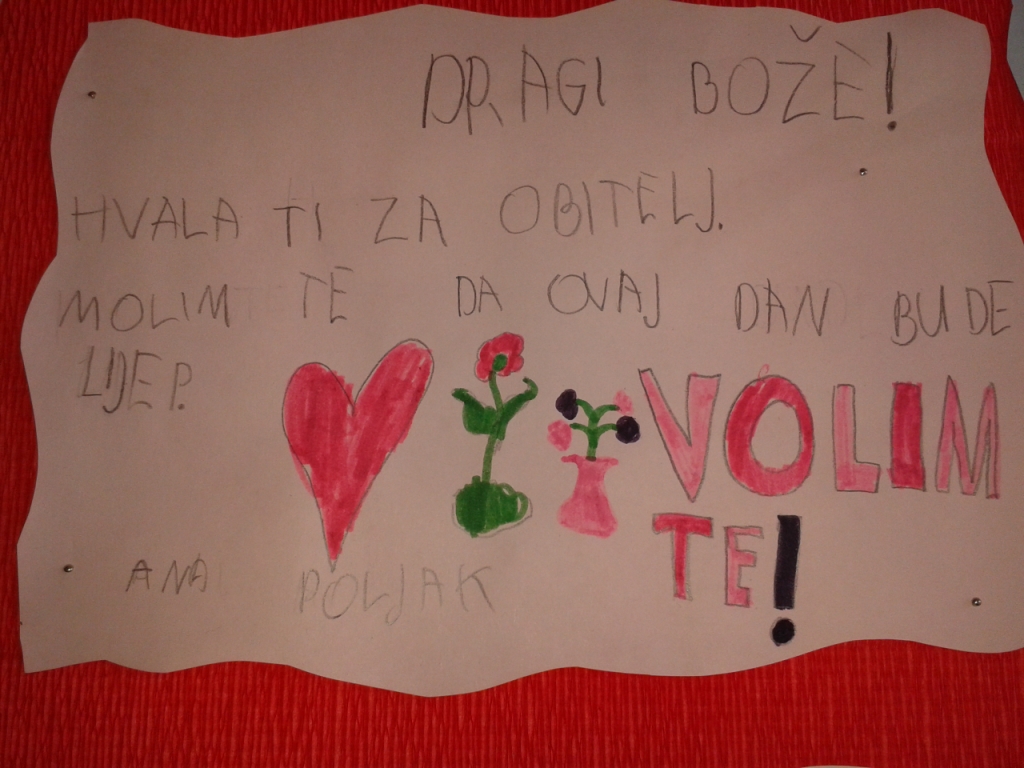 DRAGI BOŽE!
HVALA TI ZA OBITELJ.
MOLIM TE DA OVAJ DAN BUDE
LIJEP.
VOLIM
TE!
ANA POLJAK